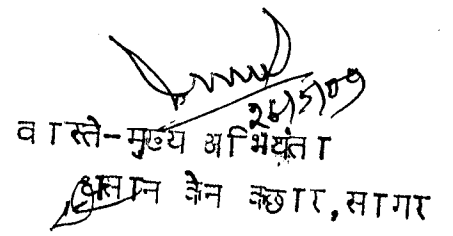 26/5/09
वास्ते-मुख्य अभियंता
धसान केन कछार, सागर